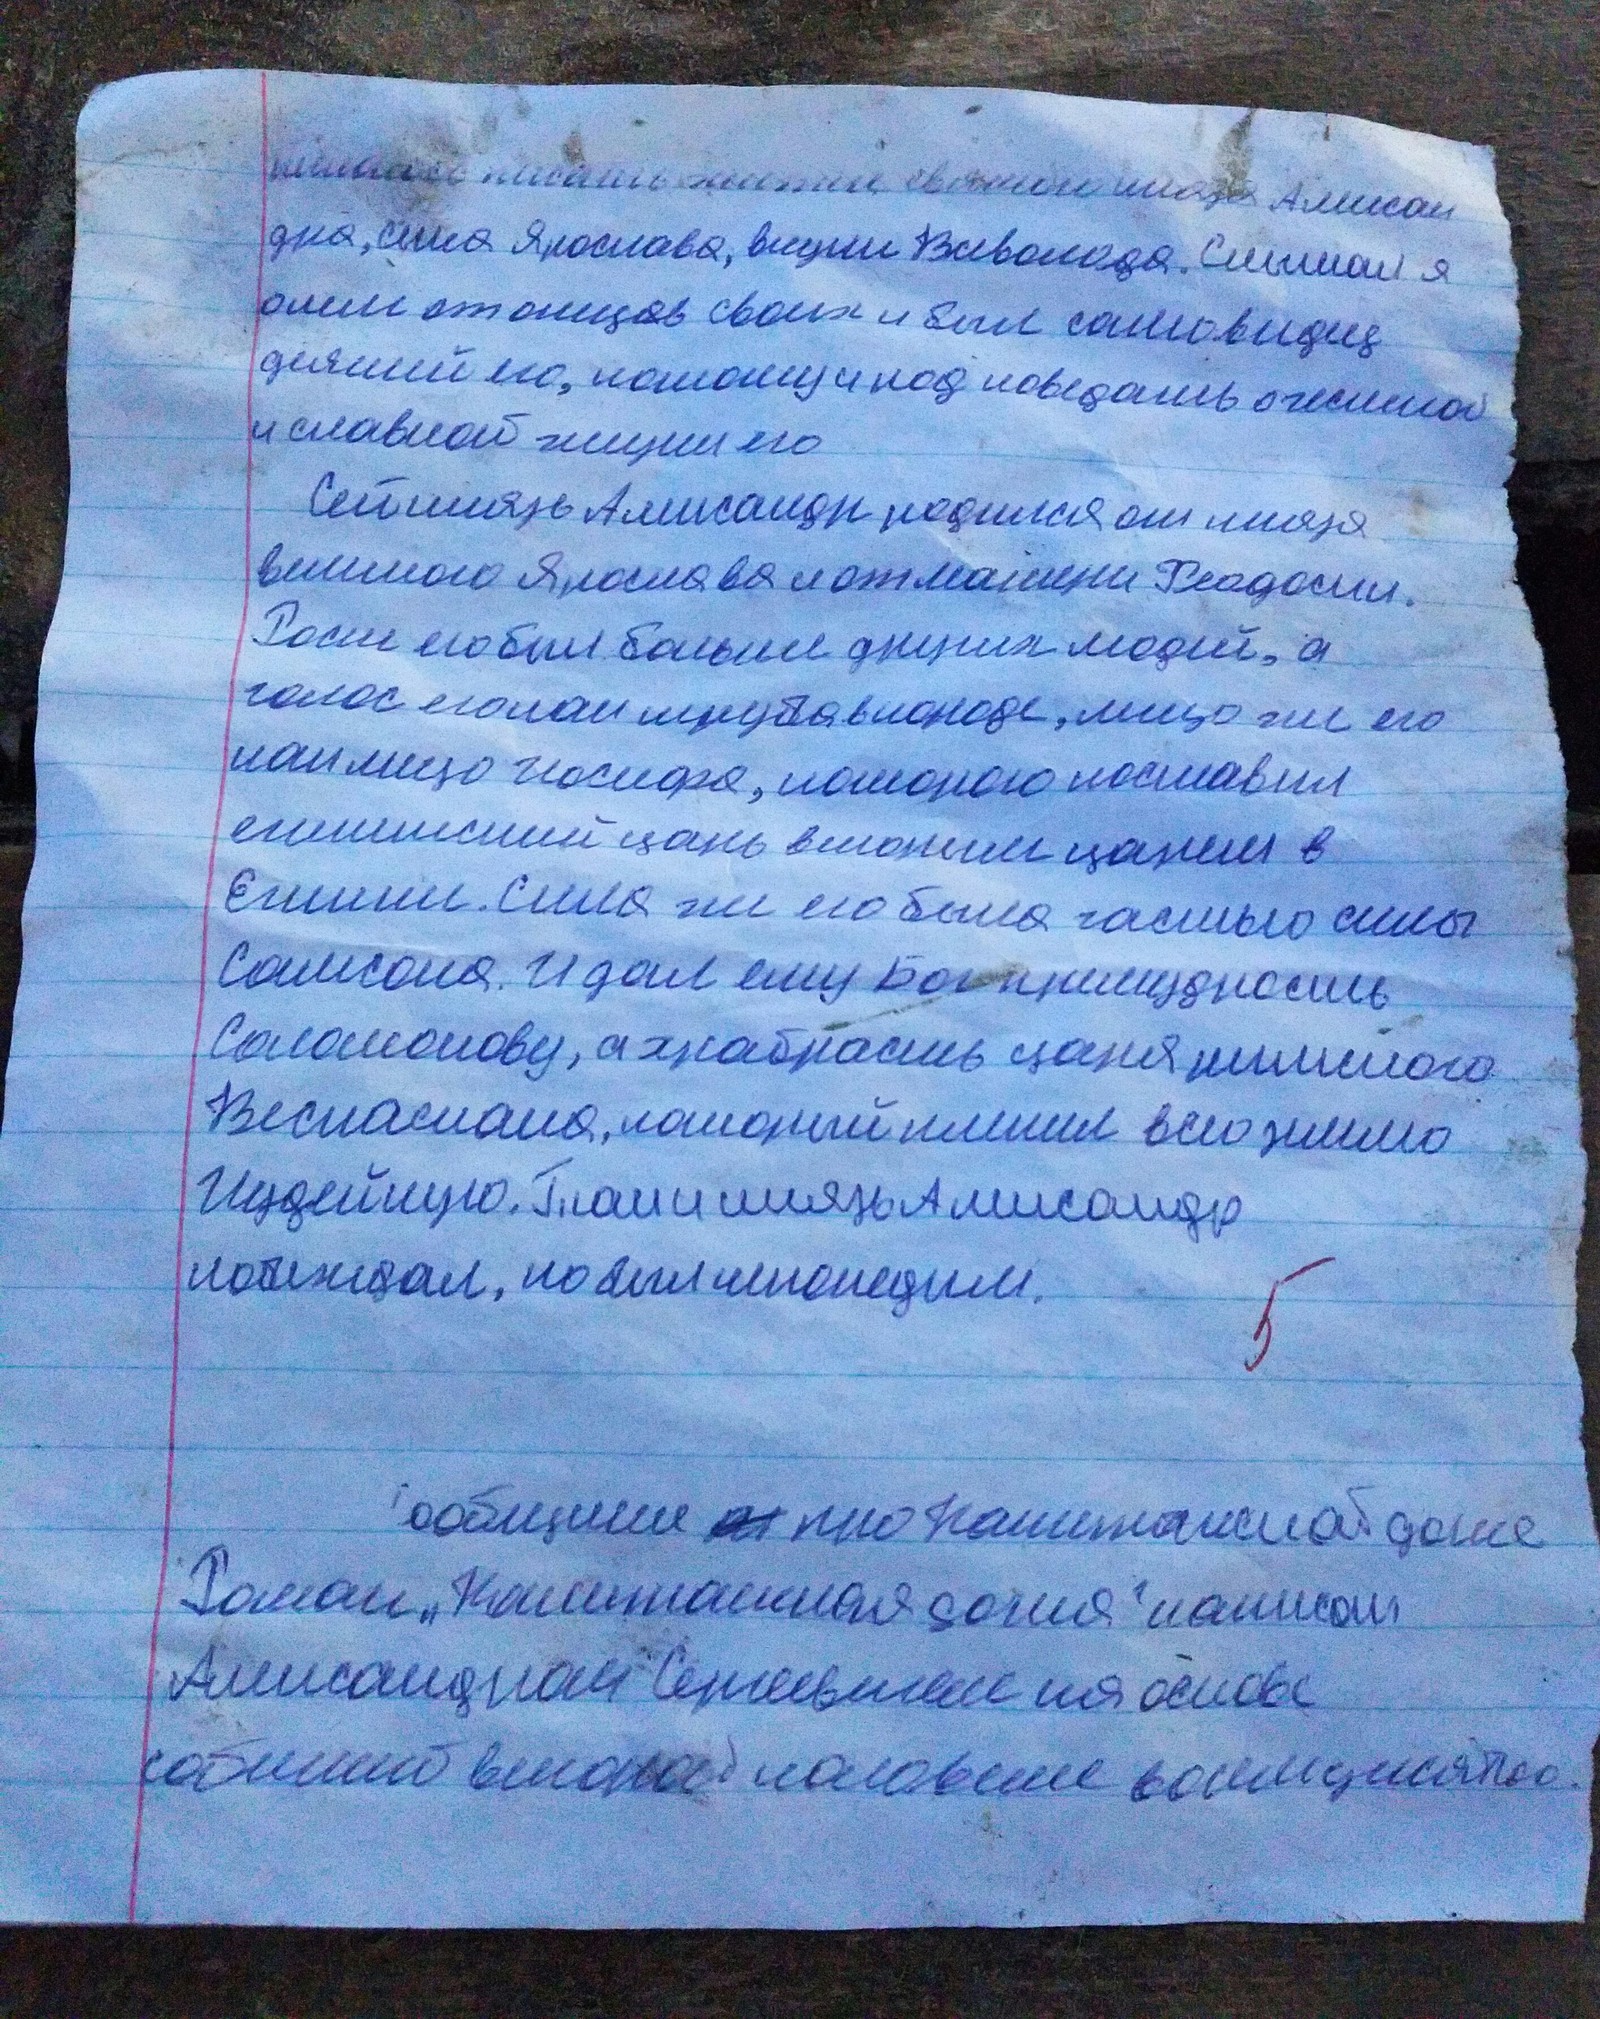 писать житие святого князя Алексан
дра, сына Ярослава, внука Всеволода. Слышал я
от отцов своих и был самовидец
деяний его, потому и рад поведать о честной
и славной жизни его
Сей князь Александр родился от князя
великого Ярослава и от матери Феодосии.
Рост его был больше других людей, а
голос его как труба в народе, лицо же его
как лицо Иосифа, которого поставил
египетский царь вторым царем в
Египте. Сила же его была частью силы
Самсона. И дал ему Бог премудрость
Соломонову, а храбрость царя римского
Веспасиана, который пленил всю землю
Иудейскую. Так и князь Александр
побеждал, но был непобедим.
5
Сообщение про Капитанской дочке
Роман „Капитанская дочка" написан
Александром Сергеевичем на основе
событий второй половине восемнцисятого.